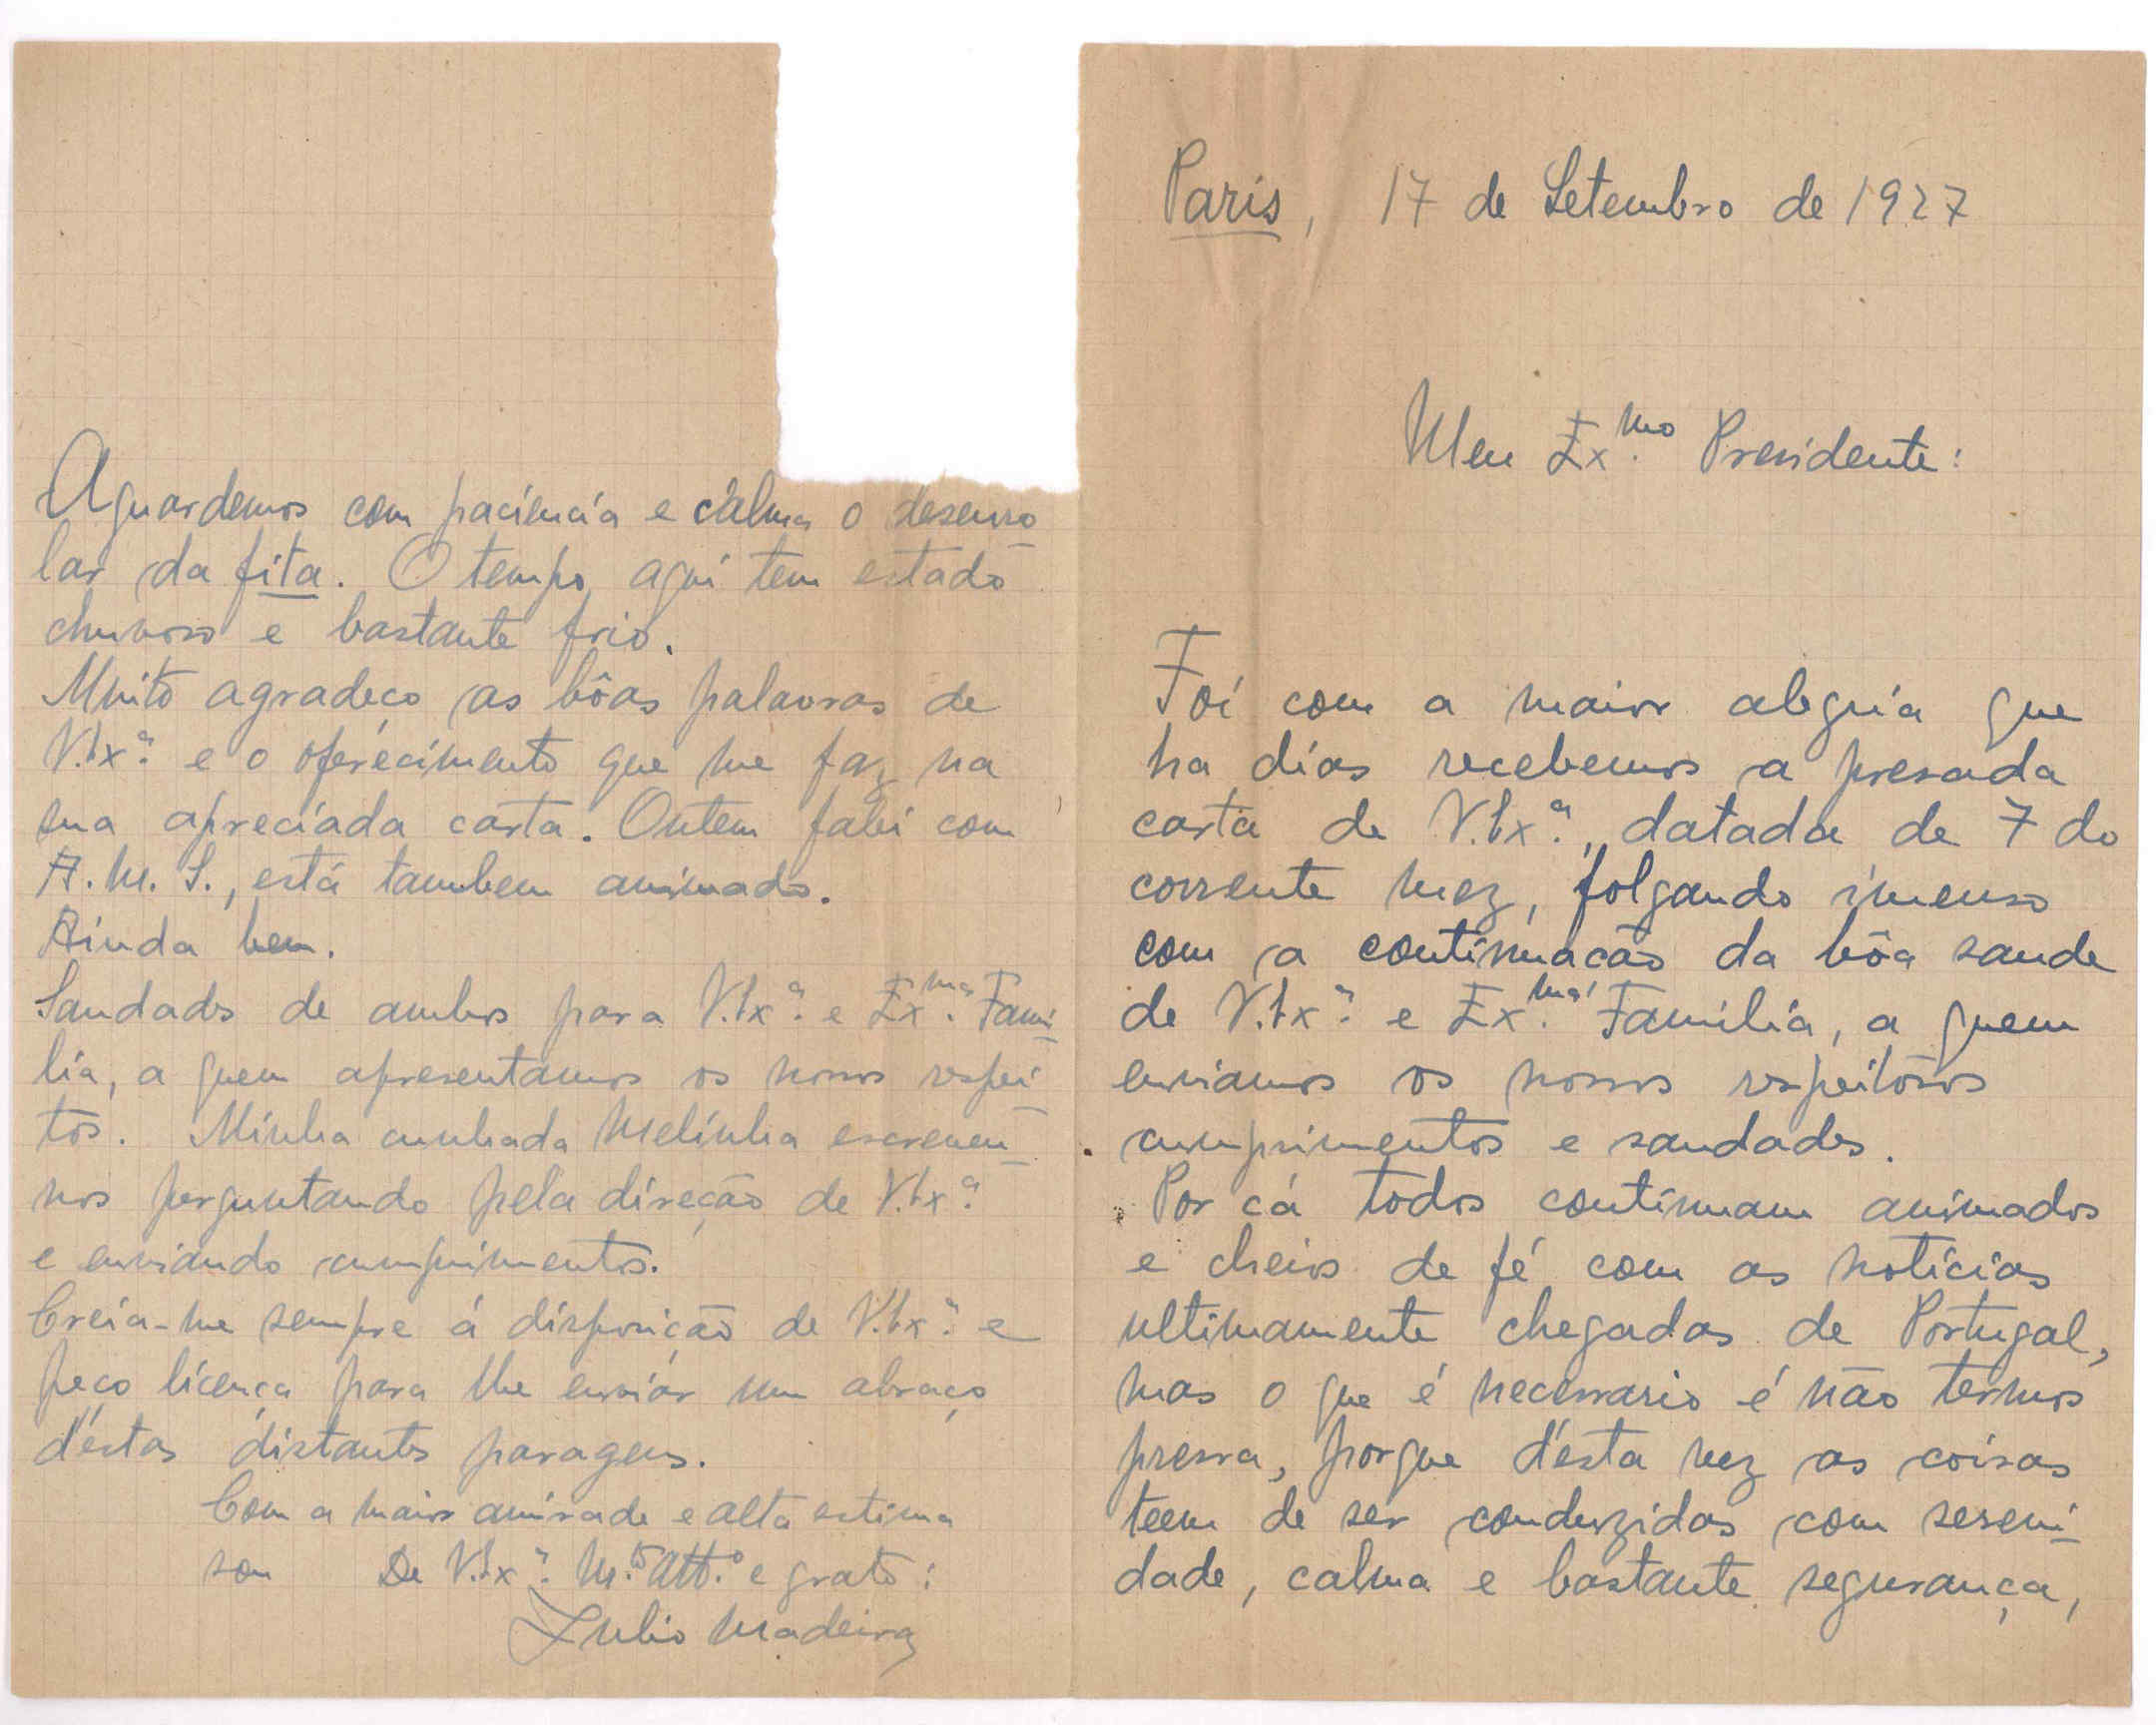 Paris, 17 de Setembro de 1927
Meu Ex.mo Presidente:
Foi com a maior alegria que
ha dias recebemos a presada
carta de V.Ex.ª, datada de 7 do
corrente mez, folgando imenso
com a continuacão da bôa saude
de V.Ex.ª e Ex.ma Familia, a quem
enviamos os nossos respeitosos
cumprimentos e saudades.
Por cá todos continuam animados
e cheios de fé com as noticias
ultimamente chegadas de Portugal,
mas o que é necessario é não termos
pressa, porque d'esta vez as coisas
teem de ser conduzidas com sereni-
dade, calma e bastante segurança,
Aguardemos com paciencia e calma o desenro-
lar da fita. O tempo aqui tem estado
chuvoso e bastante frio.
Muito agradeço as bôas palavras de
V.Ex.ª e o oferecimento que me faz na
sua apreciada carta. Ontem falei com
A.M.S., está tambem animado.
Ainda bem.
Saudades de ambos para V.Ex.ª e Ex.ma Fami-
lia, a quem apresentamos os nossos respei-
tos. Minha cunhada Melinha escreveu-
nos perguntando pela direção de V.Ex.ª
e enviando cumprimentos.
Creia-me sempre á disposição de V.Ex.ª e
peço licença para lhe enviar um abraço
d'estas distantes paragens.
Com a maior amisade e alta estima
sou De V.Ex.ª M.to Att.º e grato:
Julio Madeira